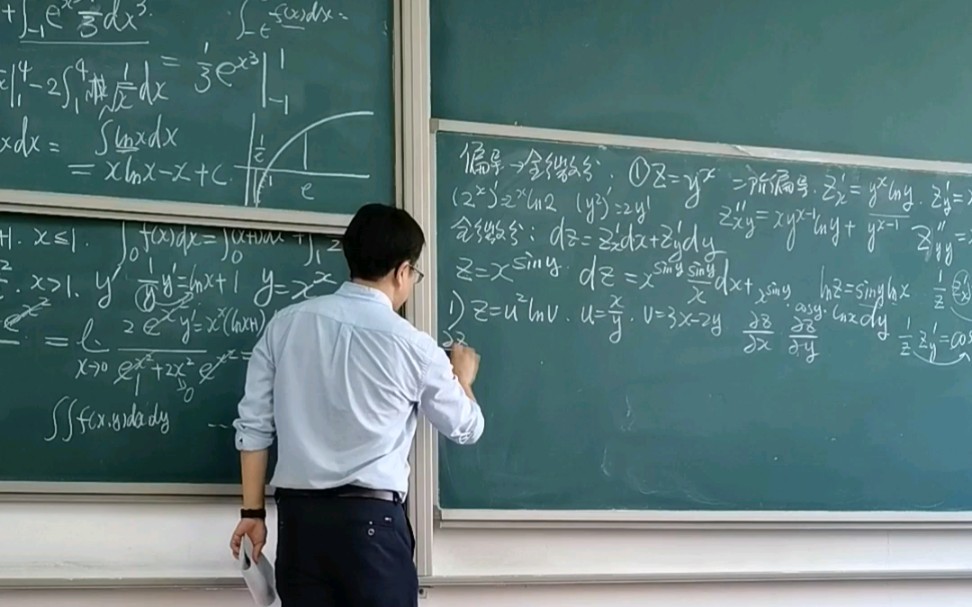 +∫₋₁ e^{x³} 1/3 dx³
∫₋ₑ f(x)dx =
|₁⁴ - 2∫₁⁴ 1/√x dx
= 1/3 e^{x³} |₋₁¹
x dx = ∫ln x dx
= x ln x - x + C
1/e
1
e
+1. x≤1.
∫₀ f(x)dx = ∫₀ (x+1)dx + ∫₁
x>1.
y' 1/y y' = ln x + 1 y = x^x
y' = x^x(ln x + 1)
= lim x→0 2e^{x²} / e^{x²} + 2x² e^{x²} =
1
0
∫∫f(x.y)dxdy ...
偏导→全微分: ① z = y^x 二阶偏导. z'ₓ = y^x ln y. z'_y =
(2^x)' = 2^x ln 2 (y²)' = 2y' z''ₓy = xy^{x-1} ln y + y^{x-1} z''yy =
全微分: dz = z'ₓdx + z'_y dy
z = x^{sin y}. dz = x^{sin y} sin y/x dx + x^{sin y} cos y · ln x dy
ln z = sin y ln x
1/z
1) z = u² ln v. u = x/y. v = 3x-2y ∂z/∂x ∂z/∂y
1/z z'_y = cos
∂z